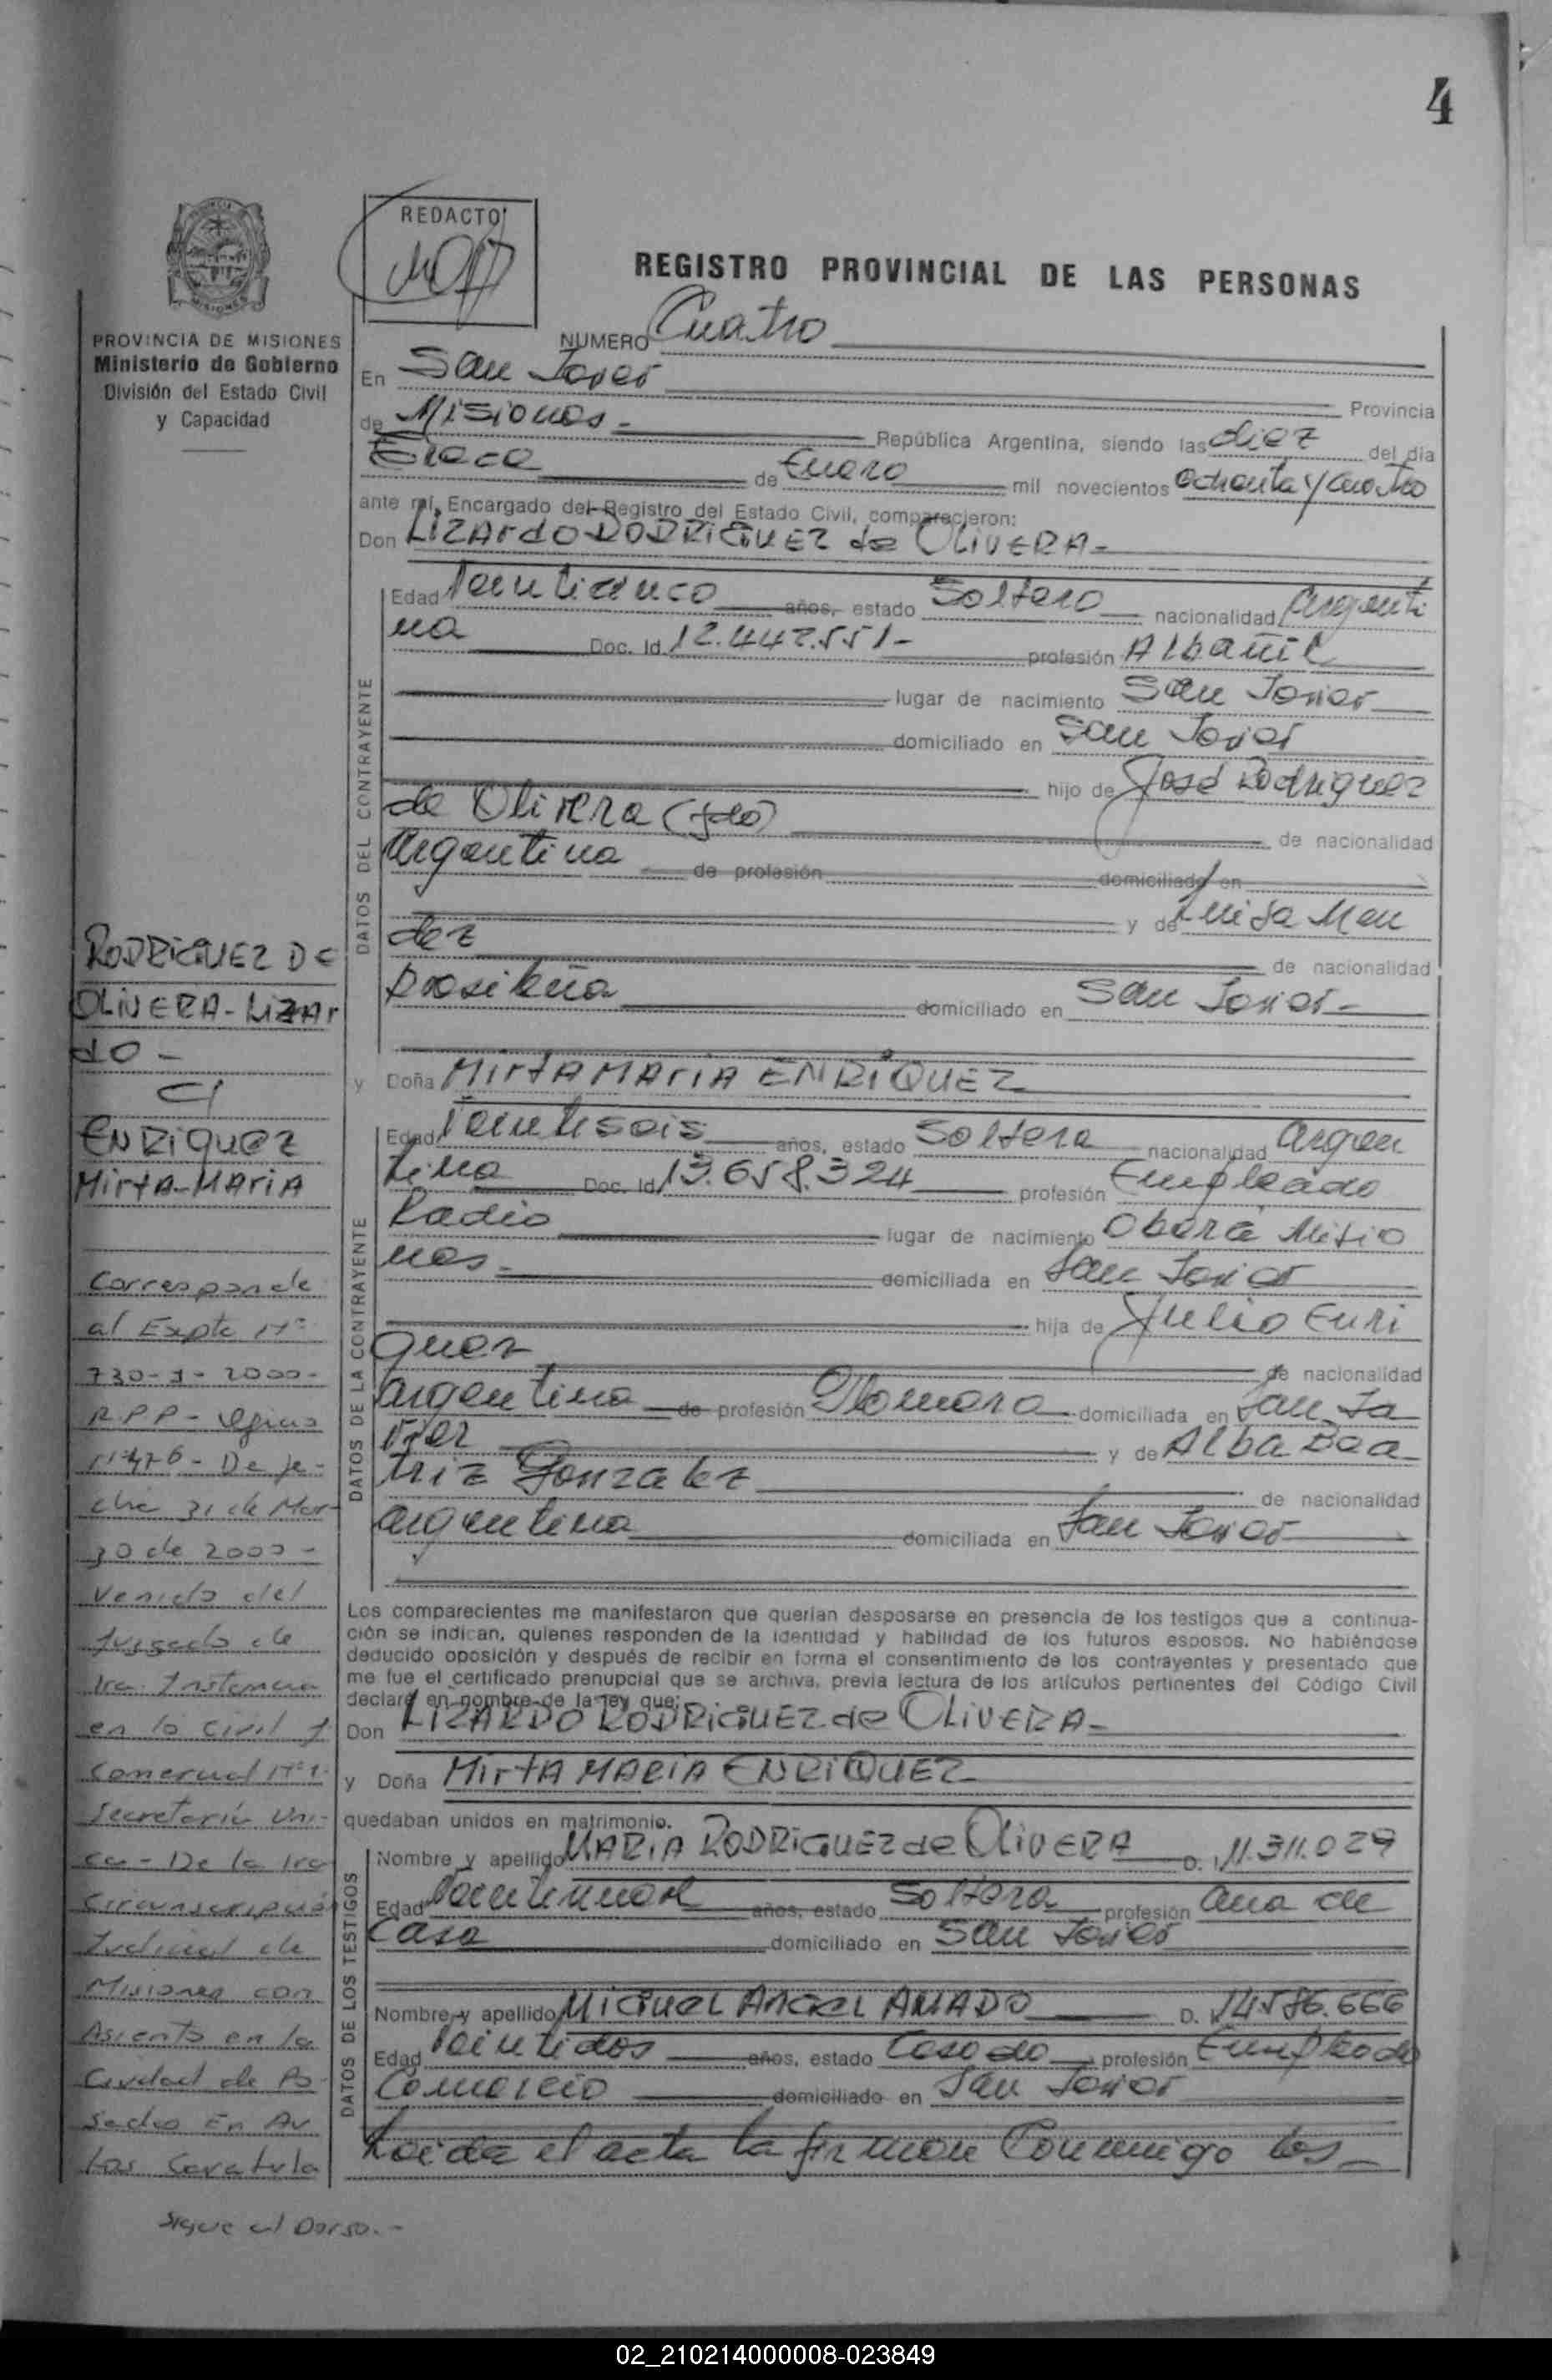 4
REDACTO
REGISTRO PROVINCIAL DE LAS PERSONAS
PROVINCIA DE MISIONES
Ministerio de Gobierno
División del Estado Civil
y Capacidad
NUMERO Cuatro
En San Javier
Provincia
de Misiones.- República Argentina, siendo las diez del día
Trece de Enero mil novecientos ochenta y cuatro
ante mí, Encargado del Registro del Estado Civil, comparecieron:
Don LIZArdO RODRIGUEZ de OLIVERA-
DATOS DEL CONTRAYENTE
Edad Veinticinco años, estado Soltero nacionalidad Argenti
na Doc. Id. 12.442.551- profesión Albañil
lugar de nacimiento San Javier
domiciliado en San Javier
hijo de José Rodriguez
de Olivera (fdo) de nacionalidad
Argentina de profesión domiciliado en
y de Luisa Men
dez de nacionalidad
brasileña domiciliado en San Javier-
y Doña MirtA MAriA ENRIQUEZ
DATOS DE LA CONTRAYENTE
Edad Veintiseis años, estado Soltera nacionalidad Argen
tina Doc. Id. 13.658.324 profesión Empleado
Radio lugar de nacimiento Oberá Misio
nes.- domiciliada en San Javier
hija de Julio Enri
quez de nacionalidad
argentina de profesión domiciliada en San Ja
vier y de Alba Bea
triz Gonzalez de nacionalidad
argentina domiciliada en San Javier
Los comparecientes me manifestaron que querían desposarse en presencia de los testigos que a continua-
ción se indican, quienes responden de la identidad y habilidad de los futuros esposos. No habiéndose
deducido oposición y después de recibir en forma el consentimiento de los contrayentes y presentado que
me fue el certificado prenupcial que se archiva, previa lectura de los artículos pertinentes del Código Civil
declaré en nombre de la ley que:
Don LIZARDO RODRIGUEZ de OLIVERA-
y Doña MirtA MARIA ENRIQUEZ
quedaban unidos en matrimonio.
DATOS DE LOS TESTIGOS
Nombre y apellido MARIA RODRIGUEZ de OLIVERA D. I. 11.311.029
Edad Veintinueve años, estado Soltera profesión Ama de
Casa domiciliado en San Javier
Nombre y apellido MIGUEL ANGEL AMADO D. I. 14.586.666
Edad Veintidos años, estado Casado profesión Empleado
Comercio domiciliado en San Javier
Leida el acta la firman Conmigo los
RODRIGUEZ DE
OLIVERA-LIZAr
dO -
C/
ENRIQUEZ
MirtA-MAriA
Corresponde
al Expte Nº
730-J-2000-
RPP-
De fe-
cha 31 de Mar-
zo de 2000 -
Venido del
Juzgado de
1ra. Instancia
en lo Civil y
Comercial Nº1-
Secretaría Uni-
ca - De la 1ra
Circunscripción
Judicial de
Misiones con
Asiento en la
Ciudad de Po-
sadas En Au
tos Caratula
Sigue al Dorso.-
02_210214000008-023849